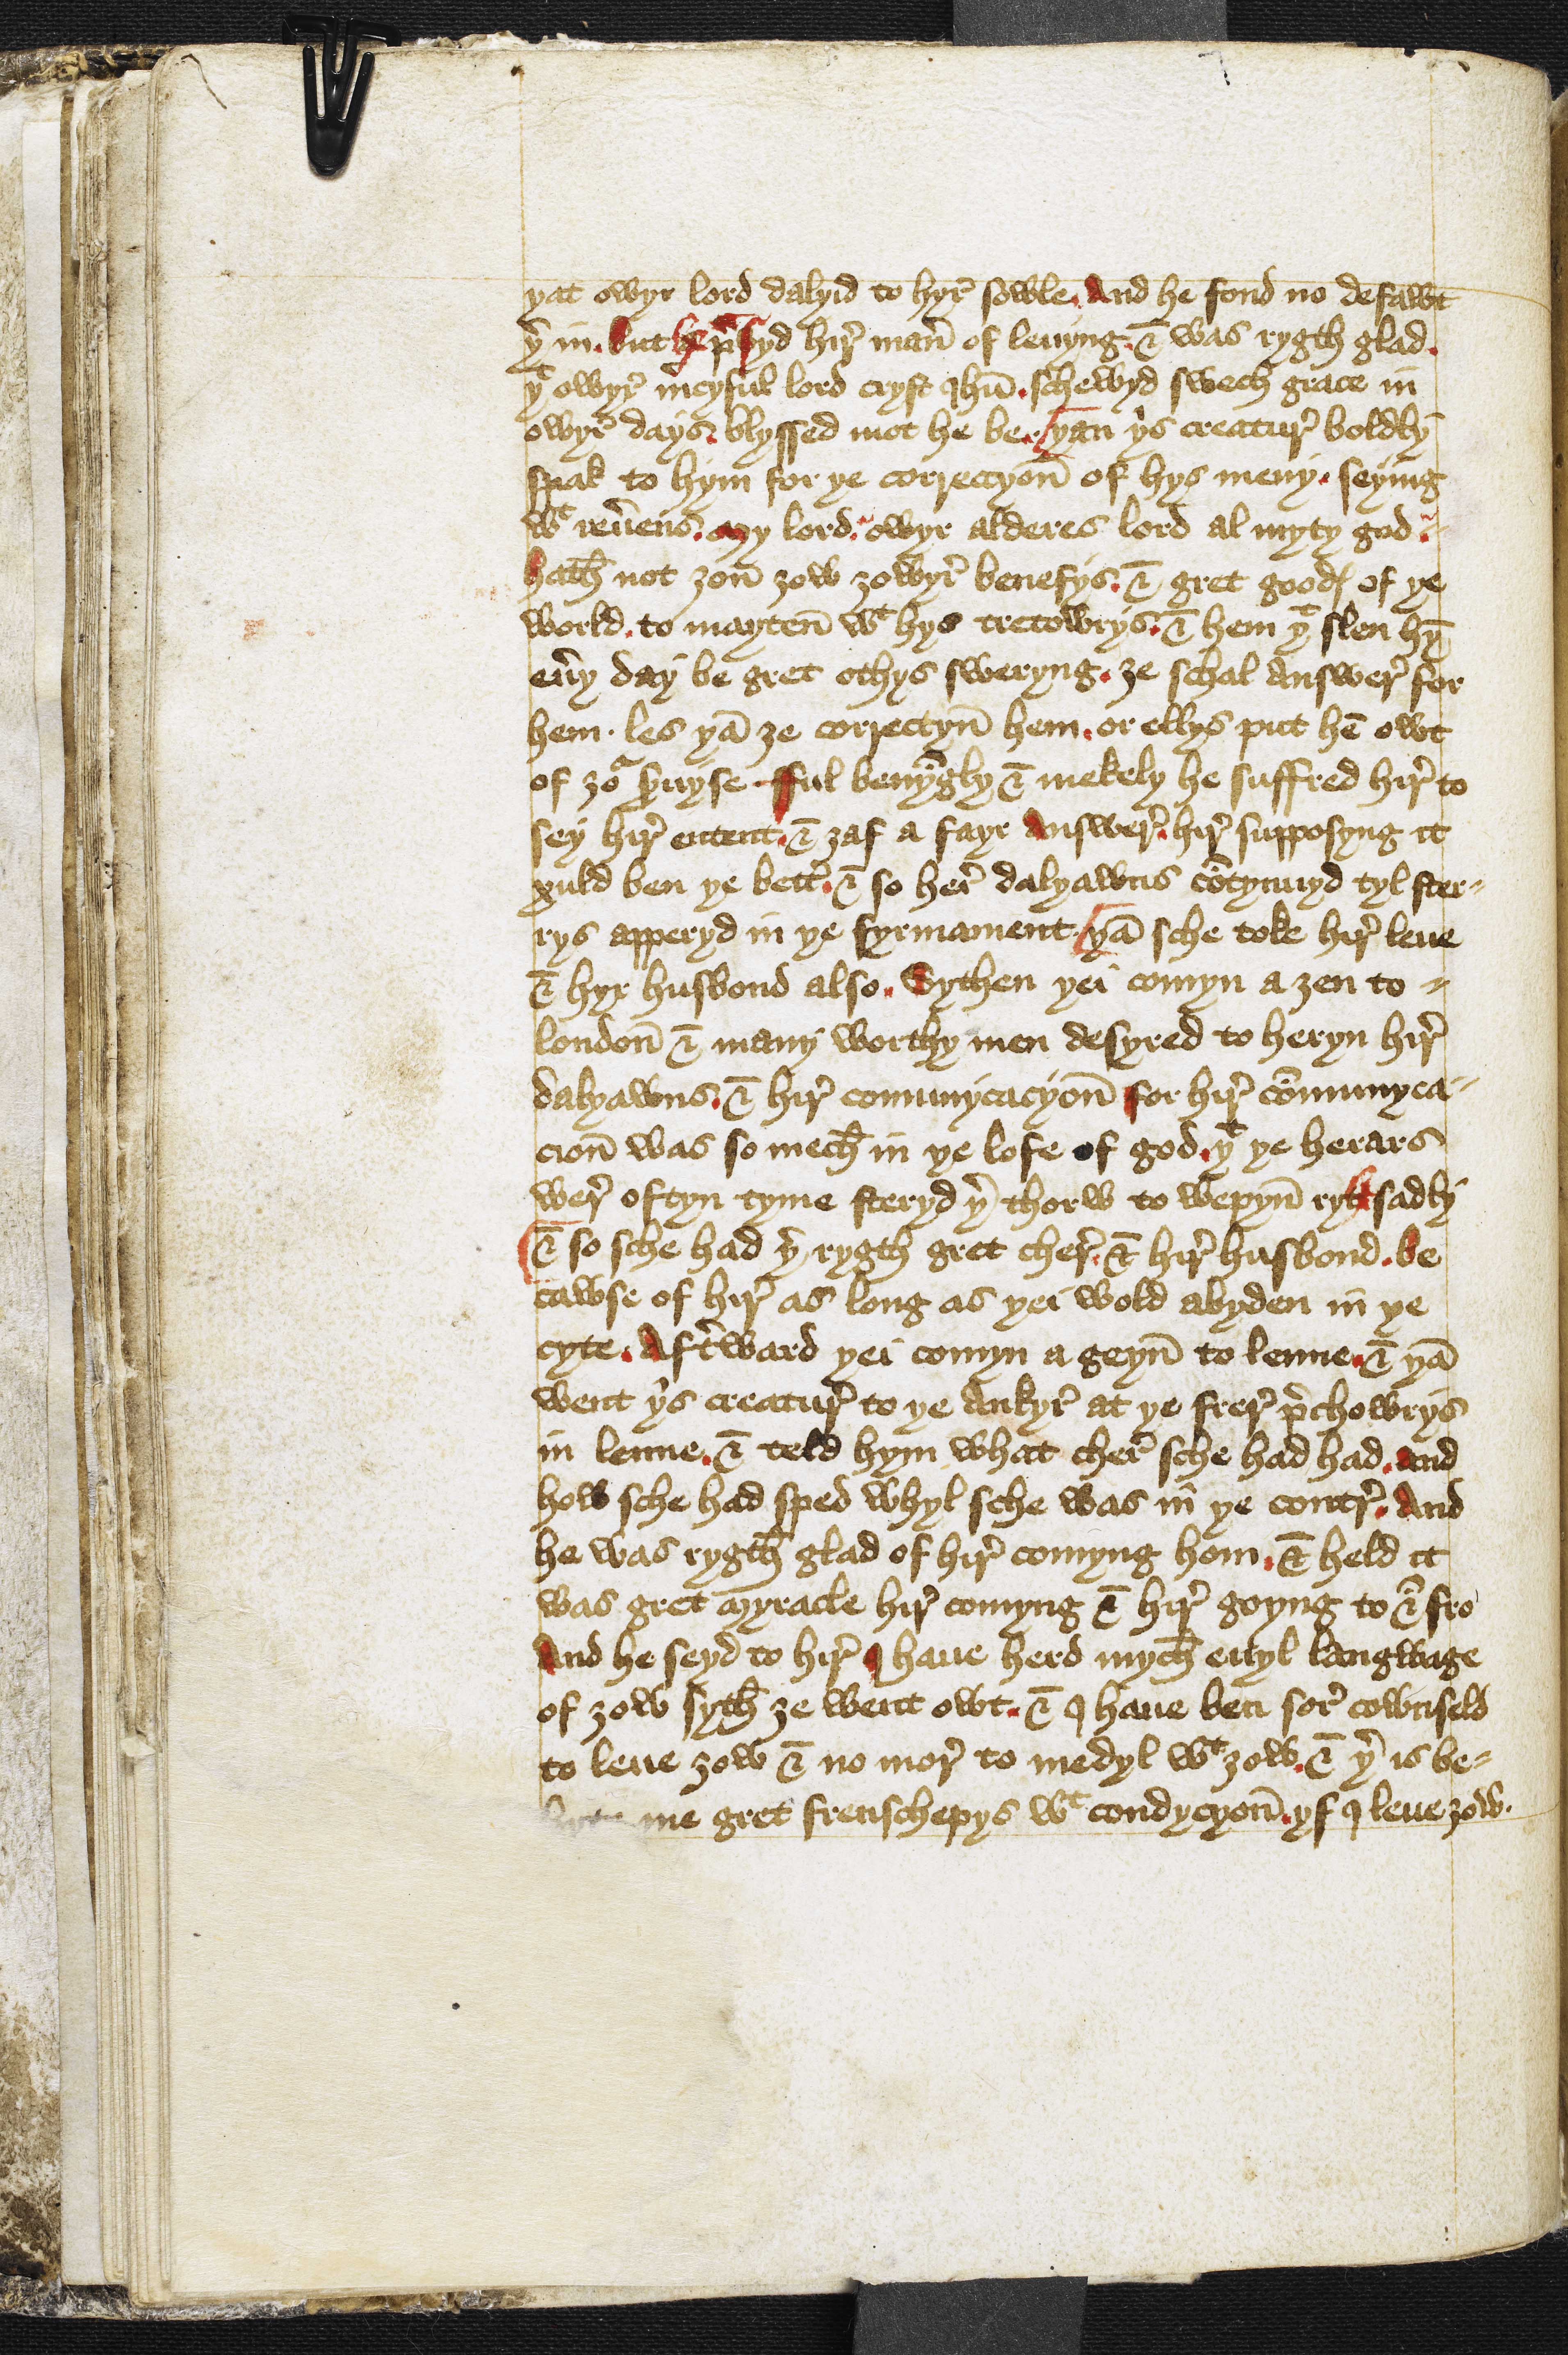 yat owyr lord dalyid to hyr̉ sowle. And he fond no defawt
yͬ in. but he p̉syd hir̉ man̄ of leuyng. & was rygth glad.
yͭ owyr̉ m̉cyful lord cryst Ihū. schewyd swech grace in
owyr̉ days. blyssed mot he be. yan yͥs creatur̉ boldly
spak to hym for ye correccyon̄ of hys meny. seying
wͭ reủens. My lord. owyr alderes lord al myty god.
hath̄ not ȝon̄ ȝow ȝowyr̉ benefys. & gret goodꝭ of ye
world. to mayten̄ wͭ hys tretowrys. & hem yͭ slen hȳ
eủy day be gret othys sweryng. ȝe schal Answer̉ for
hem. les yā ȝe correctyn̄ hem. or ellys put hē owt
of ȝoͬ s̉uyse. fful benyngly & mekely he suffred hir̉ to
sey hir̉ entent. & ȝaf a fayr Answer̉. hir̉ supposyng it
xuld ben ye bett̉. & so her̉ dalyawns cōtynuyd tyl ster-
rys apperyd in ye fyrmament. yā sche toke hir̉ leue
& hyr husbond also. Sythen yei comyn a ȝen to -
london̄ & many worthy men desyred to heryn hir̉
dalyawns. & hir̉ comunycacyon̄ for hir̉ cōmunyca-
cion̄ was so mech̄ in ye lofe of god. yͭ ye herars
wer̉ oftyn tyme steryd yͬ thorw to wepyn̄ ryt sadly
& so sche had yͬ rygth gret cher̉. & hir̉ husbond. be
cawse of hir̉ as long as yei wold abyden in ye
cyte. Aft̉ward yei comyn a geyn̄ to lenne. & yā
went yͥs creatur̉ to ye Ankyr̉ at ye frer̉ p̉chowrys
in lenne. & teld hym what cher̉ sche had had. and
how sche had sped whyl sche was in ye contr̉. And
he was rygth̄ glad of hir̉ comyng hom. & held it
was gret myracle hir̉ comyng & hir̉ goyng to & fro
And he seyd to hir̉ I haue herd mych̄ euyl langwage
of ȝow syth̄ ȝe went owt. & I haue ben sor̉ cownseld
to leue ȝow & no mor̉ to medyl wͭ ȝow. & yͬ is be-
me gret frenschepys wͭ condycyon̄. yf I leue ȝow.